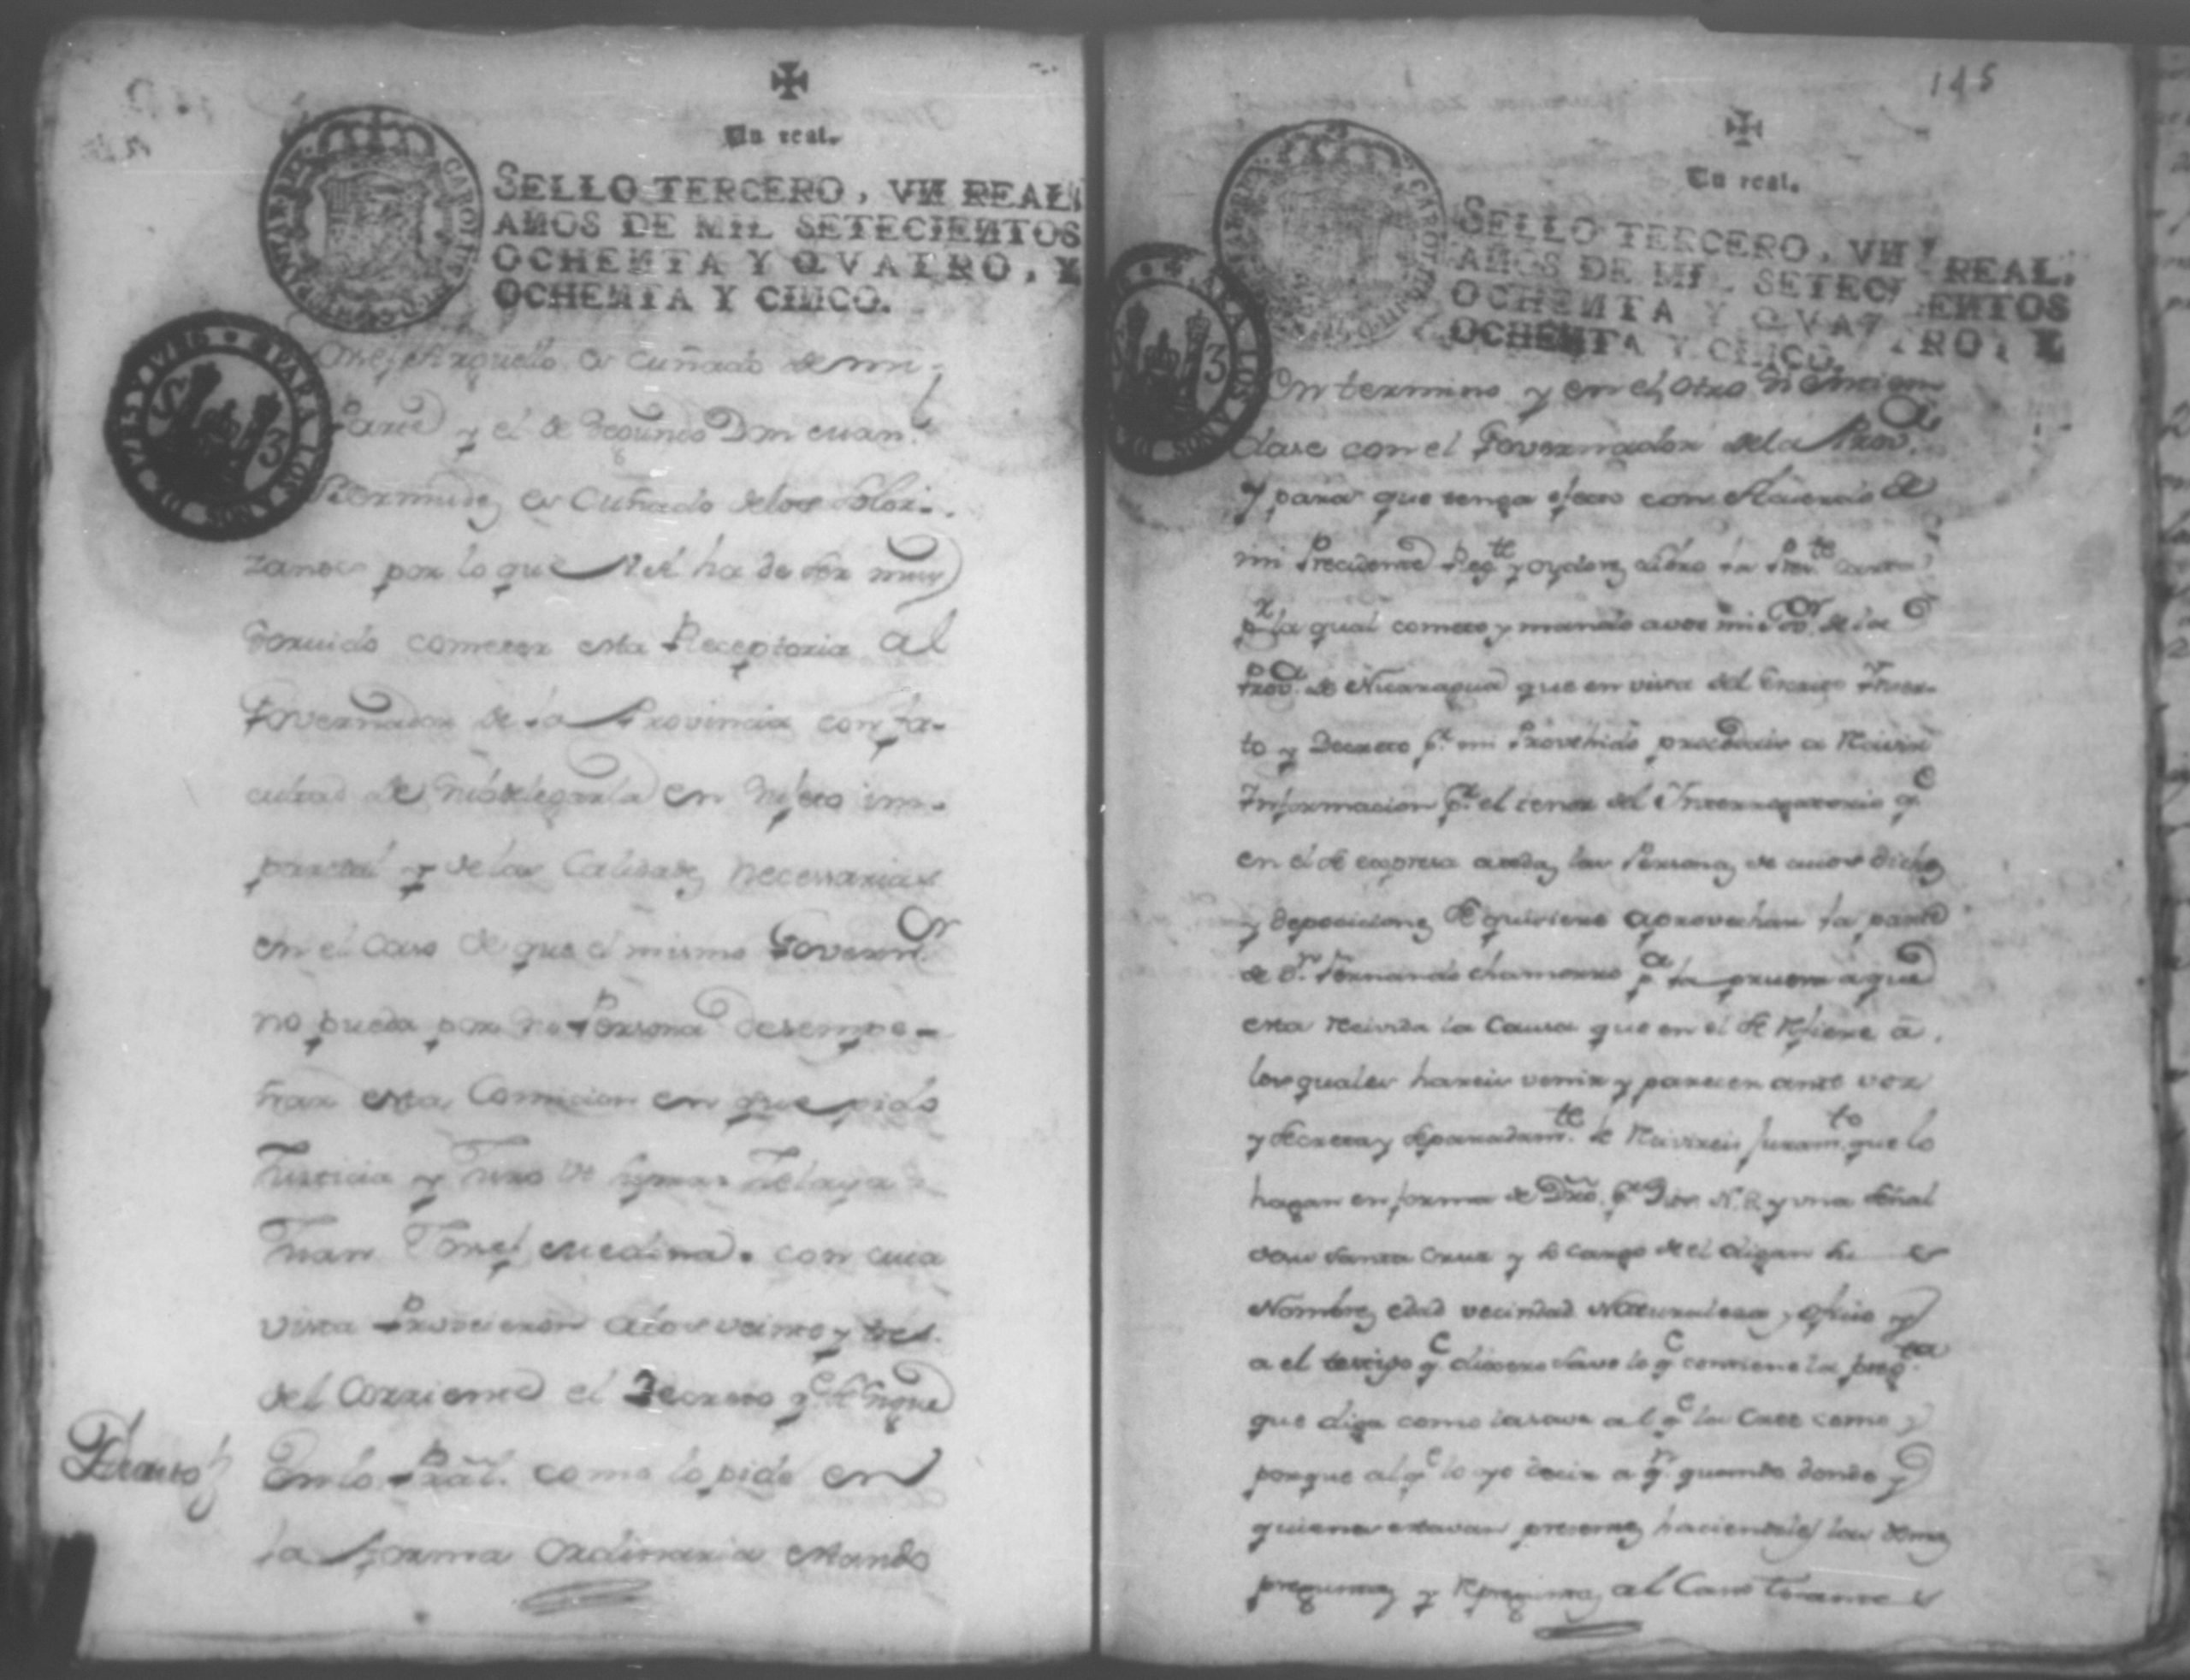 Un real.
SELLO TERCERO, VN REAL,
AÑOS DE MIL SETECIENTOS
OCHENTA Y QVATRO, Y
OCHENTA Y CINCO.
Arguello es cuñado de mi
Parte y el de Segundo Don Juan
Bermudez es Cuñado delos Solor-
zanos por lo que Vtl ha de ser muy
servido cometer esta Receptoria al
Governador de la Provincia con fa-
cultad de subdelegarla en sujeto im-
parcial y delas Calidades necessarias
en el caso de que el mismo Governor
no pueda por su Persona desempe-
ñar esta Comicion en que pido
Justicia y Juro
Juan Medina. con cuia
vista Proveieron alos veinte y tres
del Corriente el Decreto qe se sigue
Decreto
En lo Pral. como lo pide en
la forma Ordinaria estando
145
Un real.
SELLO TERCERO, VN REAL,
AÑOS DE MIL SETECIENTOS
OCHENTA Y QVATRO, Y
OCHENTA Y CINCO.
En termino y en el otro si
dase con el Governador dela Prova
Y para que tenga efecto con Acuerdo de
mi Precidente Regte y oydores libro la Preste Carta
pr la qual cometo y mando a vos mi Gor de la
Prova de Nicaragua que en vista del Escrito Inser-
to y Decreto pr mi Provehido procedais a Recivir
Informacion pr el tenor del Interrogatorio qe
en el se expresa a todas las Personas de cuios dichos
y deposiciones se quisiere aprovechar la parte
de Dn Fernando Chamorro pa la prueva a que
esta Recivida la Causa que en el se Refiere a
los quales hareis venir y parecer ante vos
y secreta y separadamte le Recivireis juramto que lo
hagan en forma de Dro. pr Dios N. S. y una señal
de su Santa Cruz y so cargo de el digan su
Nombre edad vecindad Naturaleza y oficio y
a el testigo qe dixere save lo qe contiene la pregta
que diga como lo save al qe lo Cree como y
porque al qe lo oyo decir a qn quando donde y
quienes estavan presentes haciendoles las demas
preguntas y Repreguntas al Caso tocantes